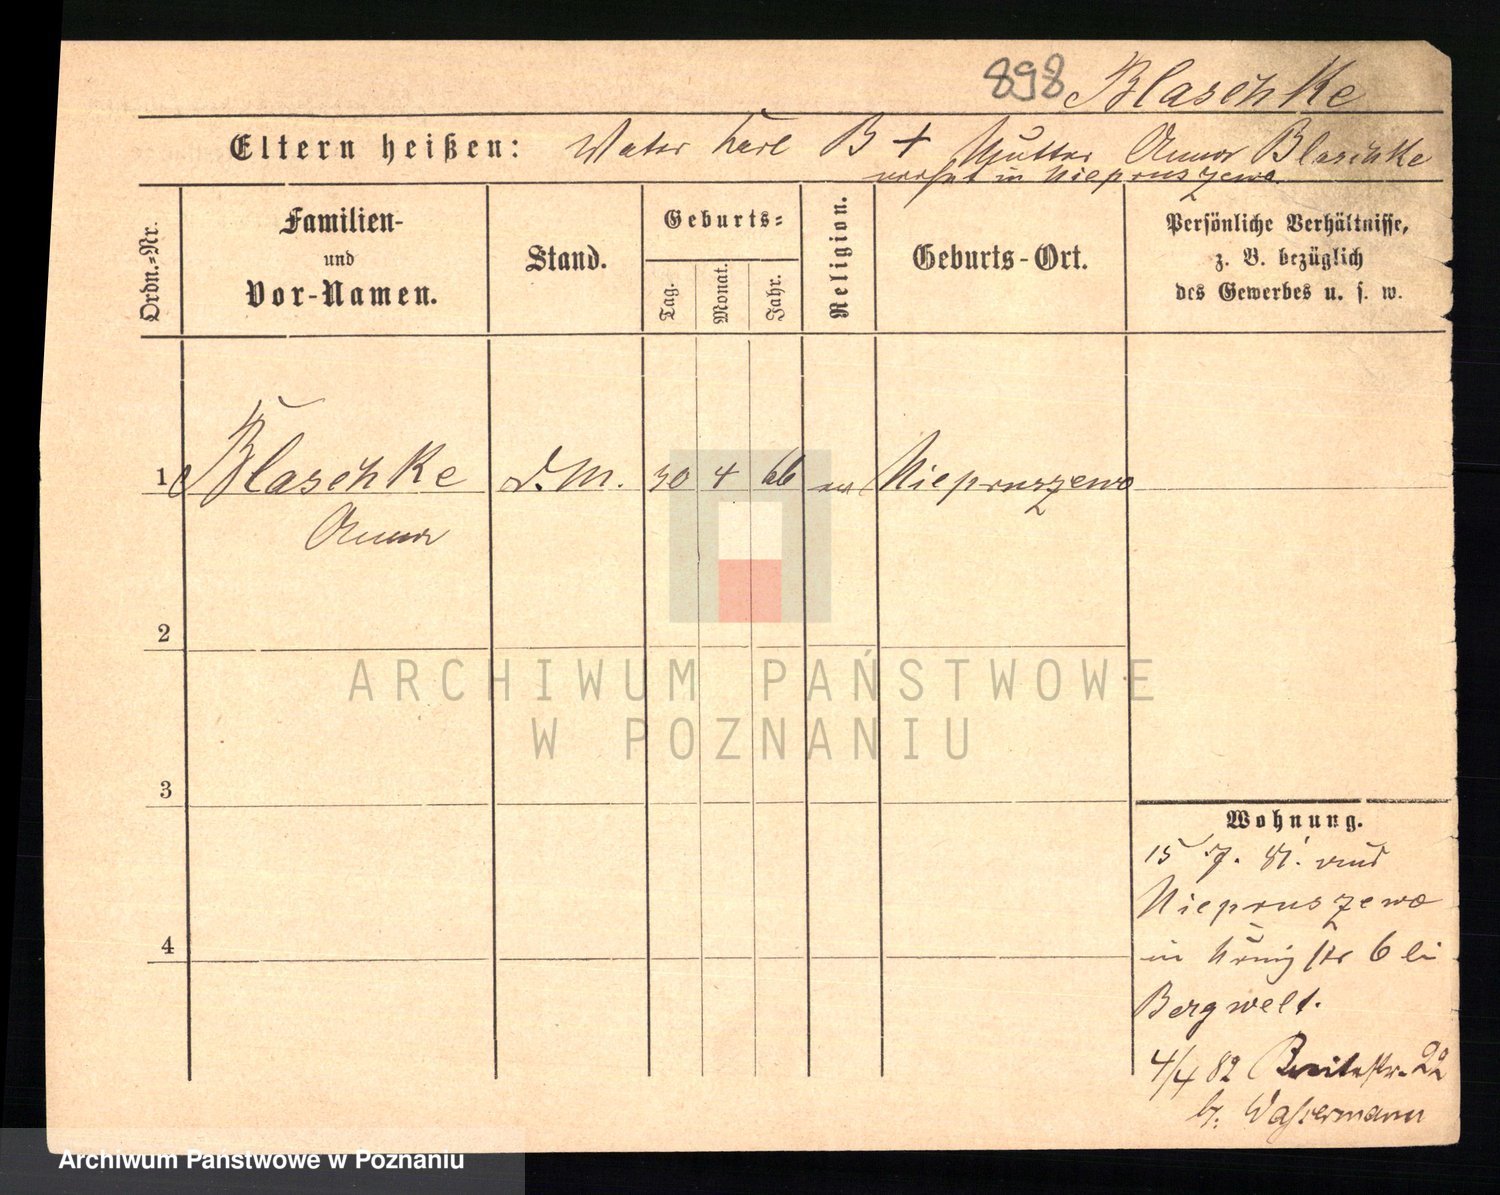 898 Blaschke
Eltern heißen: Vater Karl B + Mutter Anna Blaschke
wohnt in Niepruszewo.
Ordn.-Nr.
Familien-
und
Vor-Namen.
Stand.
Geburts-
Tag.
Monat.
Jahr.
Religion.
Geburts-Ort.
Persönliche Verhältnisse,
z. B. bezüglich
des Gewerbes u. s. w.
1 Blaschke D.M. 30 4 66 ev Niepruszewo
Anna
2
3
4
Wohnung.
15 7. 81. aus
Niepruszewo
in König str 6 bei
Bergwelt.
4/4 82 Breitestr. 22
b. Wassermann
ARCHIWUM PAŃSTWOWE
W POZNANIU
Archiwum Państwowe w Poznaniu